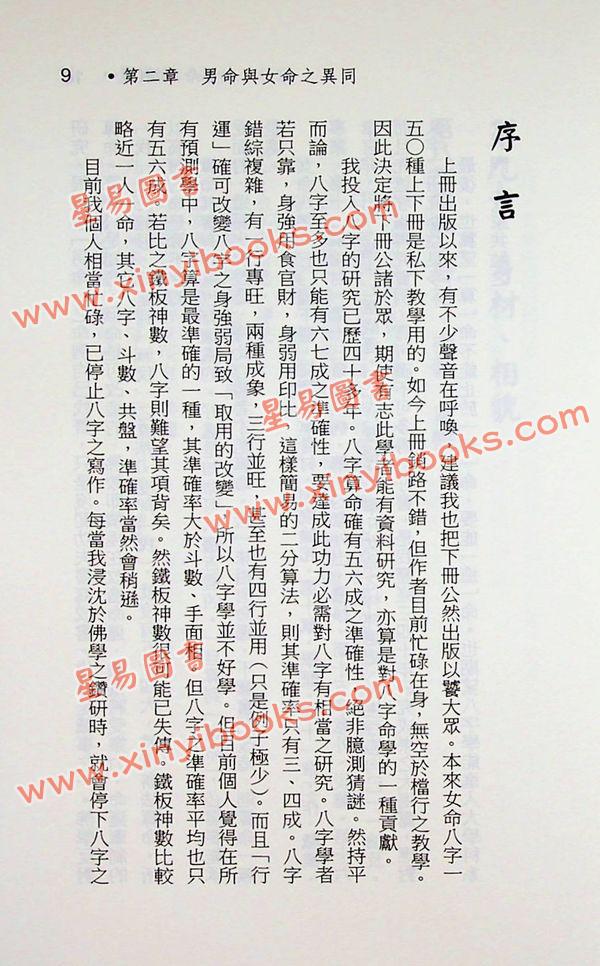 9 •第二章 男命與女命之異同
序言
上冊出版以來，有不少聲音在呼喚，建議我也把下冊公然出版以饗大眾。本來女命八字一
五〇種上下冊是私下教學用的。如今上冊銷路不錯，但作者目前忙碌在身，無空於檔行之教學。
因此決定將下冊公諸於眾，期使有志此學者能有資料研究，亦算是對八字命學的一種貢獻。
我投入八字的研究已歷四十多年。八字算命確有五六成之準確性，絕非臆測猜謎。然持平
而論，八字至多也只能有六七成之準確性，要達成此功力必需對八字有相當之研究。八字學者
若只靠，身強用食官財，身弱用印比，這樣簡易的二分算法，則其準確率只有三、四成。八字
錯綜複雜，有一行專旺，兩種成象，三行並旺，甚至也有四行並用（只是例子極少）。而且「行
運」確可改變八字之身強弱局致「取用的改變」，所以八字學並不好學。但目前個人覺得在所
有預測學中，八字算是最準確的一種，其準確率大於斗數、手面相。但八字之準確率平均也只
有五六成。若比之鐵板神數，八字則難望其項背矣。然鐵板神數很可能已失傳。鐵板神數比較
略近一人一命，其它八字、斗數、共盤，準確率當然會稍遜。
目前我個人相當忙碌，已停止八字之寫作。每當我浸沈於佛學之鑽研時，就會停下八字之
星易圖書
www.xinyibooks.com
星易圖書
www.xinyibooks.com
星易圖書
www.xinyibooks.com